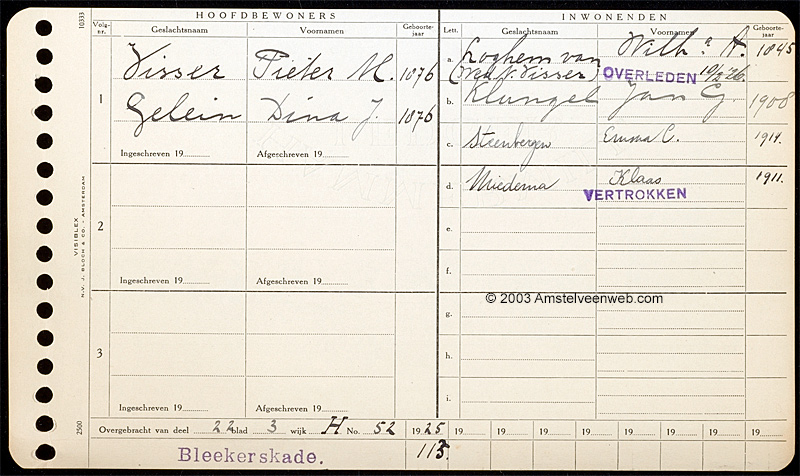 10333
HOOFDBEWONERS
INWONENDEN
Volg-nr.
Geslachtsnaam
Voornamen
Geboorte-jaar
Lett.
Geslachtsnaam
Voornamen
Geboorte-jaar
1
Visser Pieter M. 1876
Gelein Dina J. 1876
Ingeschreven 19 Afgeschreven 19
a. Lochem van Wilhª A. 1845
(Wed. V. Visser) OVERLEDEN
b. Klungel Jan G. 1908
c. Steenbergen Emma C. 1914.
d. Miedema Klaas 1911.
VERTROKKEN
2
e.
f.
Ingeschreven 19 Afgeschreven 19
© 2003 Amstelveenweb.com
3
g.
h.
i.
Ingeschreven 19 Afgeschreven 19
VISIBLEX
N.V. J. BLOCH & CO. - AMSTERDAM
2500
Overgebracht van deel 22 blad 3 wijk H No. 52 1925 19 19 19 19 19 19 19 19
Bleekerskade. 113.